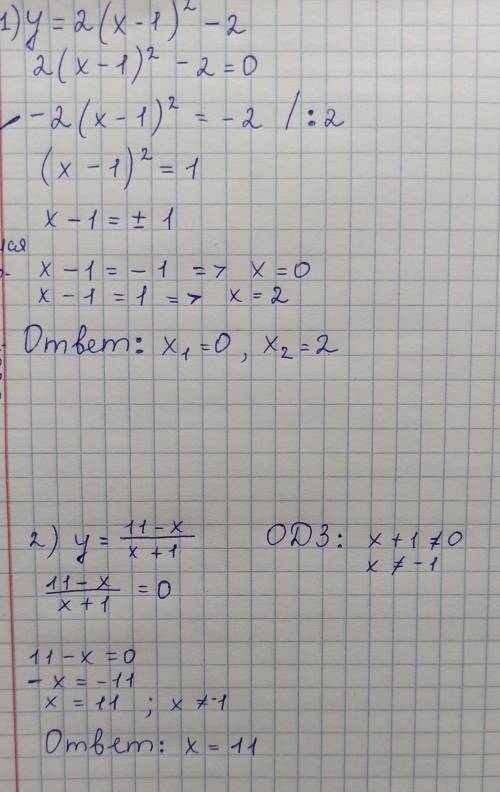 1) y = 2(x-1)² - 2
2(x-1)² - 2 = 0
-2(x-1)² = -2 /:2
(x-1)² = 1
x - 1 = ± 1
x - 1 = -1 => x = 0
x - 1 = 1 => x = 2
Ответ: x₁ = 0, x₂ = 2
2) y = (11-x)/(x+1) ОДЗ: x + 1 ≠ 0
x ≠ -1
(11-x)/(x+1) = 0
11 - x = 0
-x = -11
x = 11 ; x ≠ -1
Ответ: x = 11